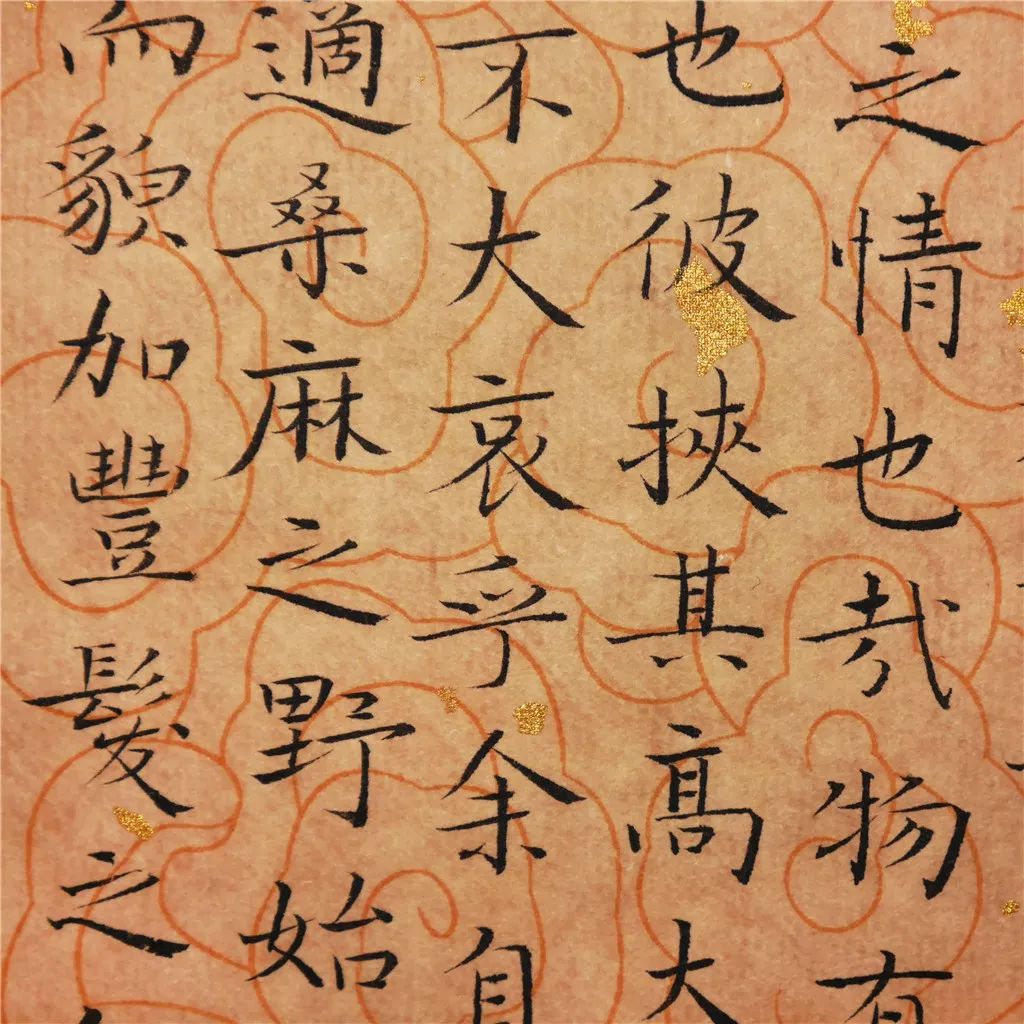 之情也哉物有
也彼挾其高大
不大哀乎余自
適桑麻之野始
而貌加豐髮之